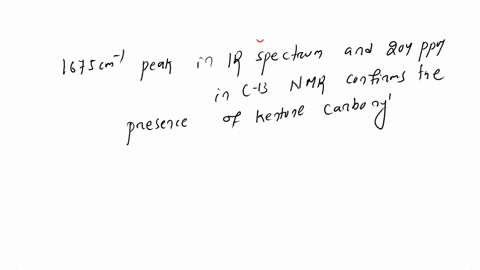 1675 cm⁻¹ peak in IR spectrum and 204 ppm
in C-13 NMR confirms the
presence of ketone carbonyl